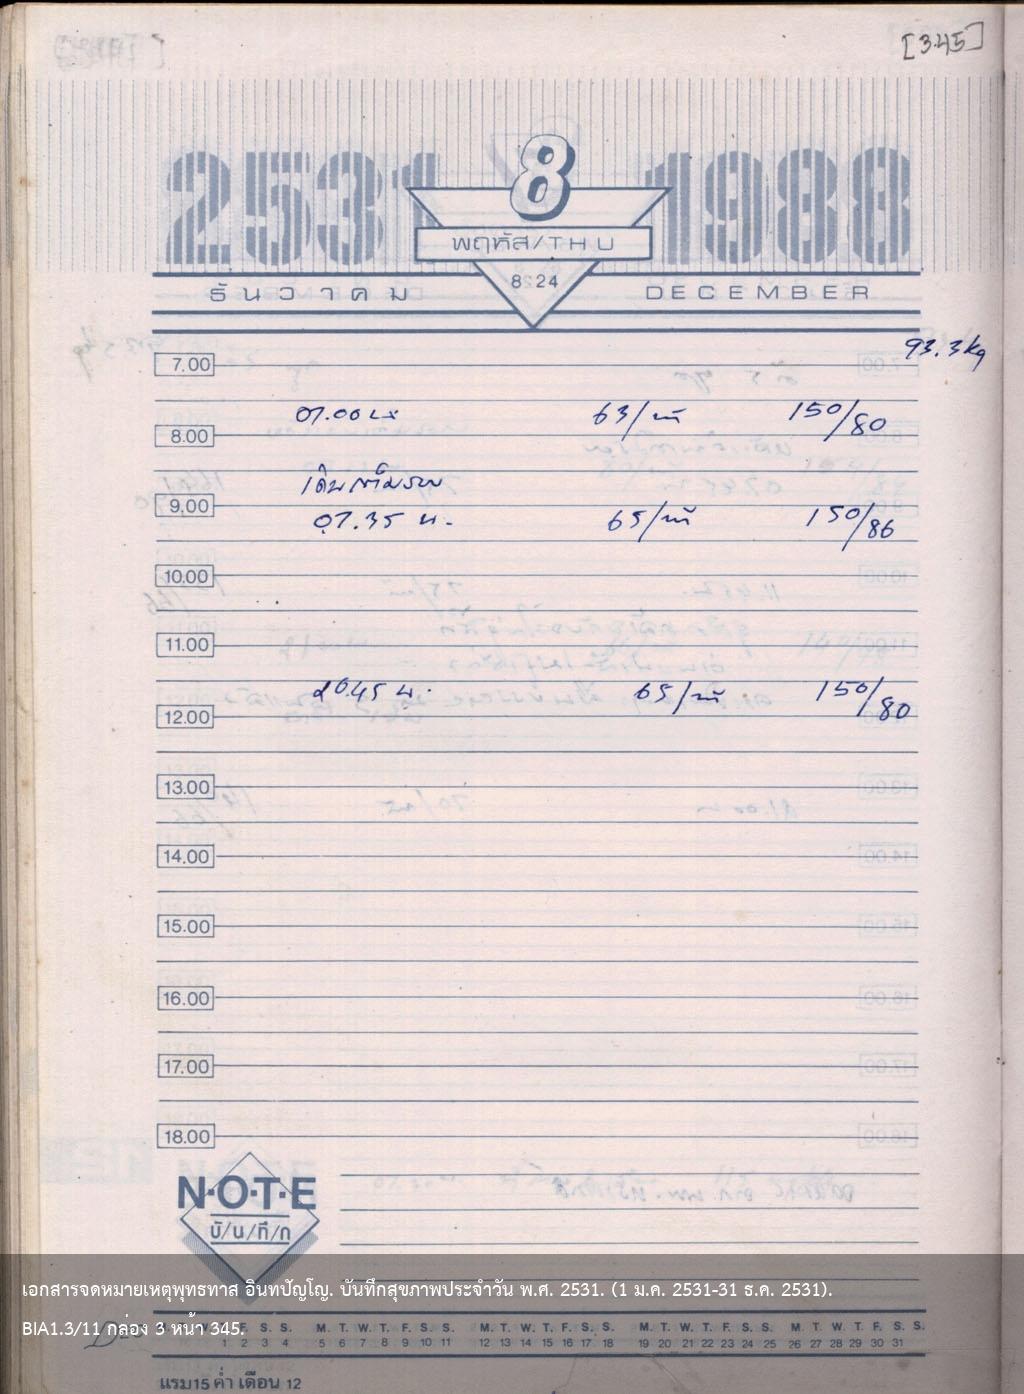 [345]
2531 8 1988
พฤหัส/THU
8:24
ธันวาคม DECEMBER
93.3kg
7.00
07.00 น 63/นาที 150/80
8.00
เดินเสร็จ
9.00
07.35 น. 65/นาที 150/86
10.00
11.00
20.45 น. 65/นาที 150/80
12.00
13.00
14.00
15.00
16.00
17.00
18.00
N·O·T·E
บั/น/ทึ/ก
เอกสารจดหมายเหตุพุทธทาส อินทปัญโญ. บันทึกสุขภาพประจำวัน พ.ศ. 2531. (1 ม.ค. 2531-31 ธ.ค. 2531).
BIA1.3/11 กล่อง 3 หน้า 345.
F. S. S. M. T. W. T. F. S. S. M. T. W. T. F. S. S. M. T. W. T. F. S. S. M. T. W. T. F. S. S.
1 2 3 4 5 6 7 8 9 10 11 12 13 14 15 16 17 18 19 20 21 22 23 24 25 26 27 28 29 30 31
แรม15 ค่ำ เดือน 12